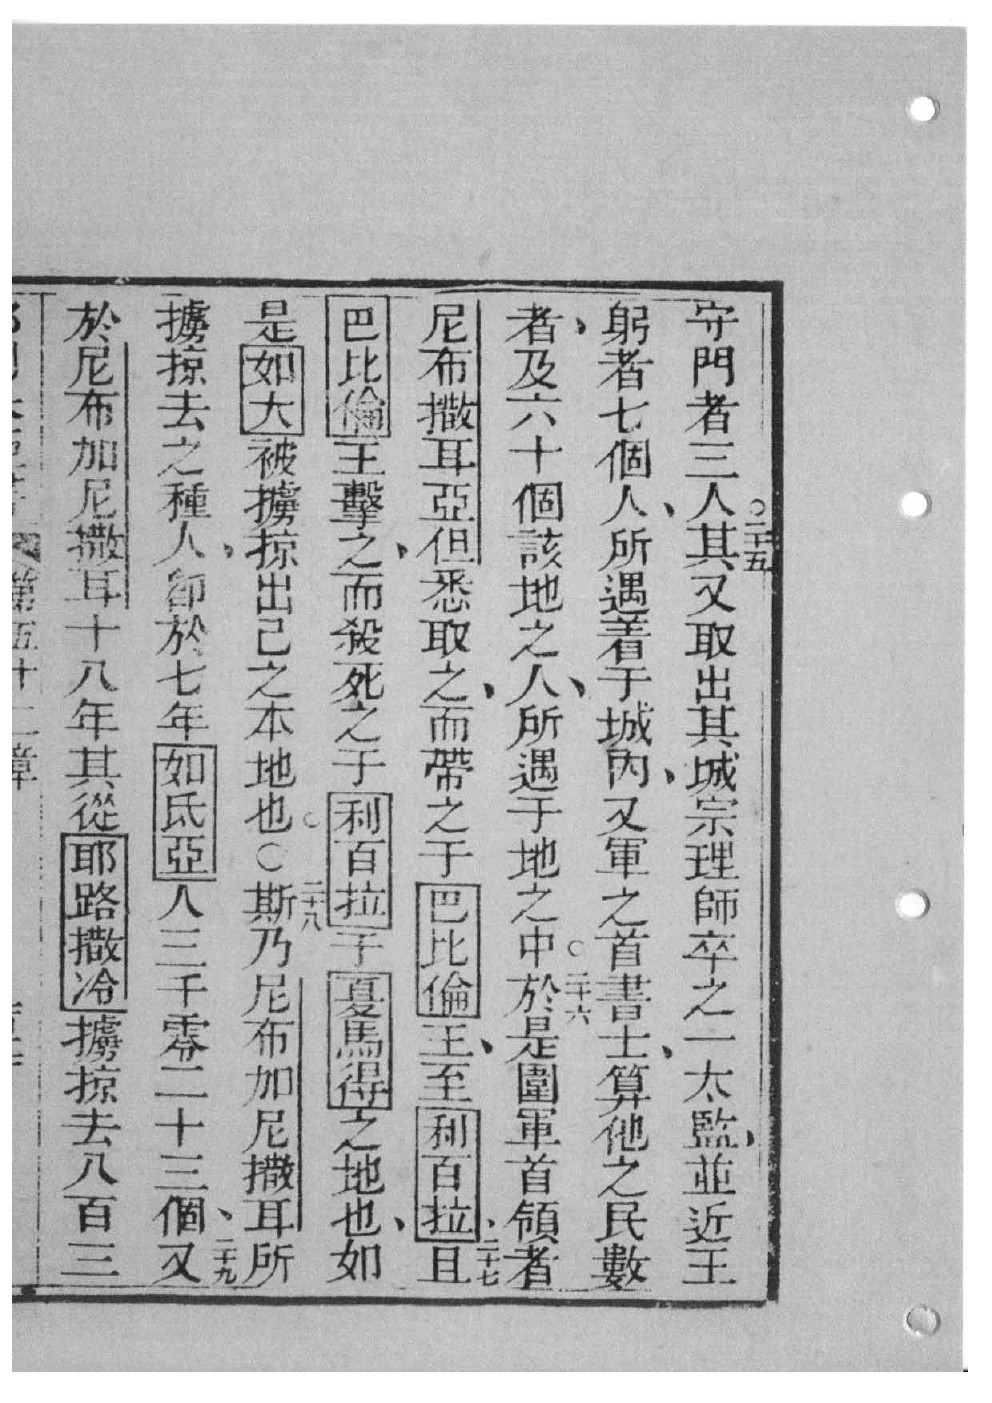 守門者三人○二十五其又取出其城宗理師卒之一太監、並近王
躬者七個人、所遇着于城內、又軍之首書士、算他之民數
者、及六十個該地之人、所遇于地之中○二十六於是圍軍首領者
尼布撒耳亞但悉取之、而帶之于巴比倫王、至利百拉、二十七且
巴比倫王擊之、而殺死之于利百拉于夏馬得之地也、如
是如大被擄掠出己之本地也○○二十八斯乃尼布加尼撒耳所
擄掠去之種人、卽於七年如氐亞人三千零二十三個、二十九又
於尼布加尼撒耳十八年其從耶路撒冷擄掠去八百三
第五十二章